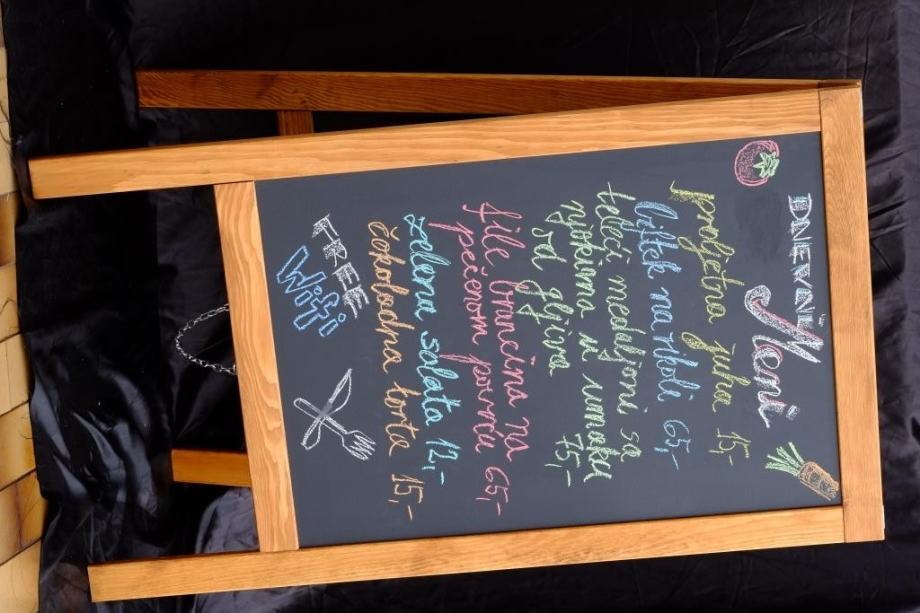 DNEVNI
Meni
proljetna juha 15,-
biftek na rikoli 65,-
teleći medaljoni sa
njokima u umaku
od gljiva 75,-
file brancina na
pečenom povrću 65,-
zelena salata 12,-
čokoladna torta 15,-
FREE
Wifi